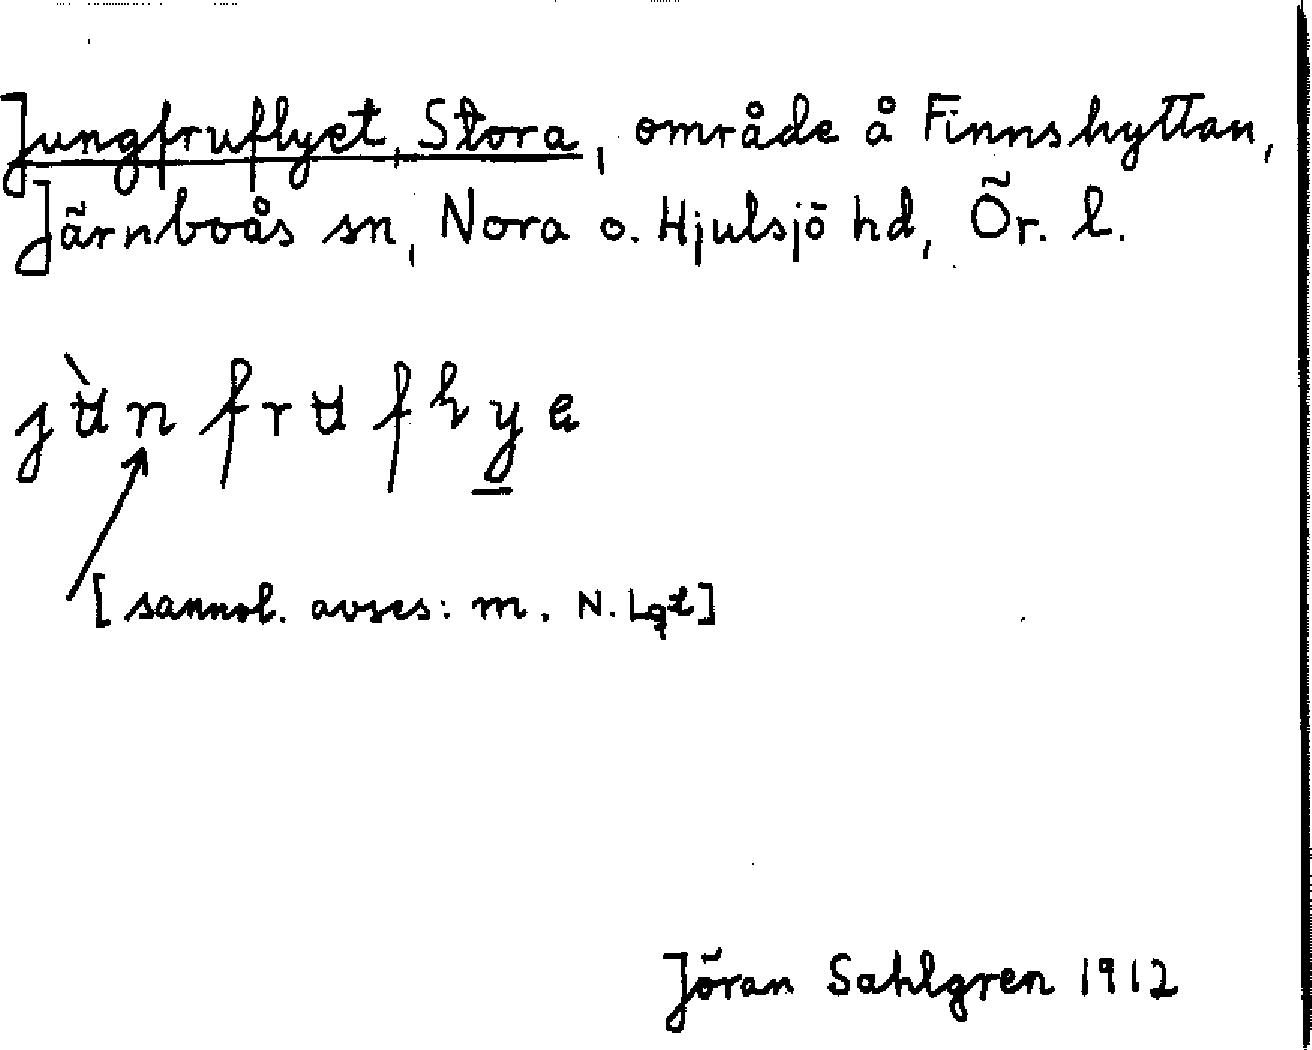 Jungfruflyet, Stora, område å Finnshyttan,
Järnboås sn, Nora o. Hjulsjö hd, Ör. l.
jùn fruflye
[sannol. avses: m. N. Lqt]
Jöran Sahlgren 1912